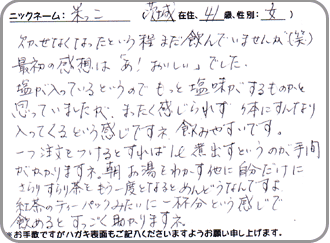 ニックネーム: 米っこ (茨城)在住、41歳、性別: 女)
欠かせなくなったという程まだ飲んでいませんが(笑)
最初の感想は「あ!おいしい」でした。
塩が入っているというのでもっと塩味がするものかと
思っていましたが、まったく感じられず体にすんなり
入ってくるという感じですネ。飲みやすいです。
一つ注文をつけるとすれば1ℓ煮出すというのが手間
がかかりますネ。朝お湯をわかす他に自分だけに
さらりすらり茶をもう一度となるとめんどうなんですよ。
紅茶のティーパックみたいに一杯分という感じで
飲めるとすっごく助かりますネ。
※お手数ですがハガキ表面もご記入くださいますようお願い申し上げます。